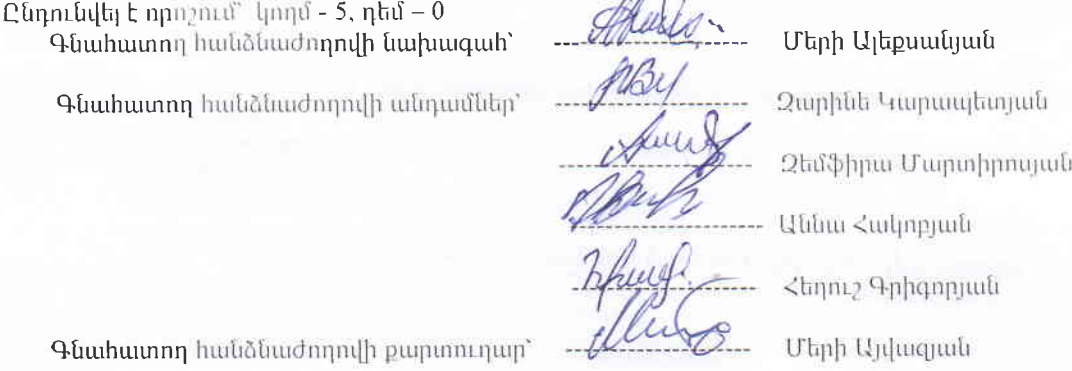 Ընդունվել է որոշում՝ կողմ - 5, դեմ – 0
Գնահատող հանձնաժողովի նախագահ՝ Մերի Ալեքսանյան
Գնահատող հանձնաժողովի անդամներ՝ Զարինե Կարապետյան
Զեմֆիրա Մարտիրոսյան
Աննա Հակոբյան
Հեղուշ Գրիգորյան
Գնահատող հանձնաժողովի քարտուղար՝ Մերի Այվազյան